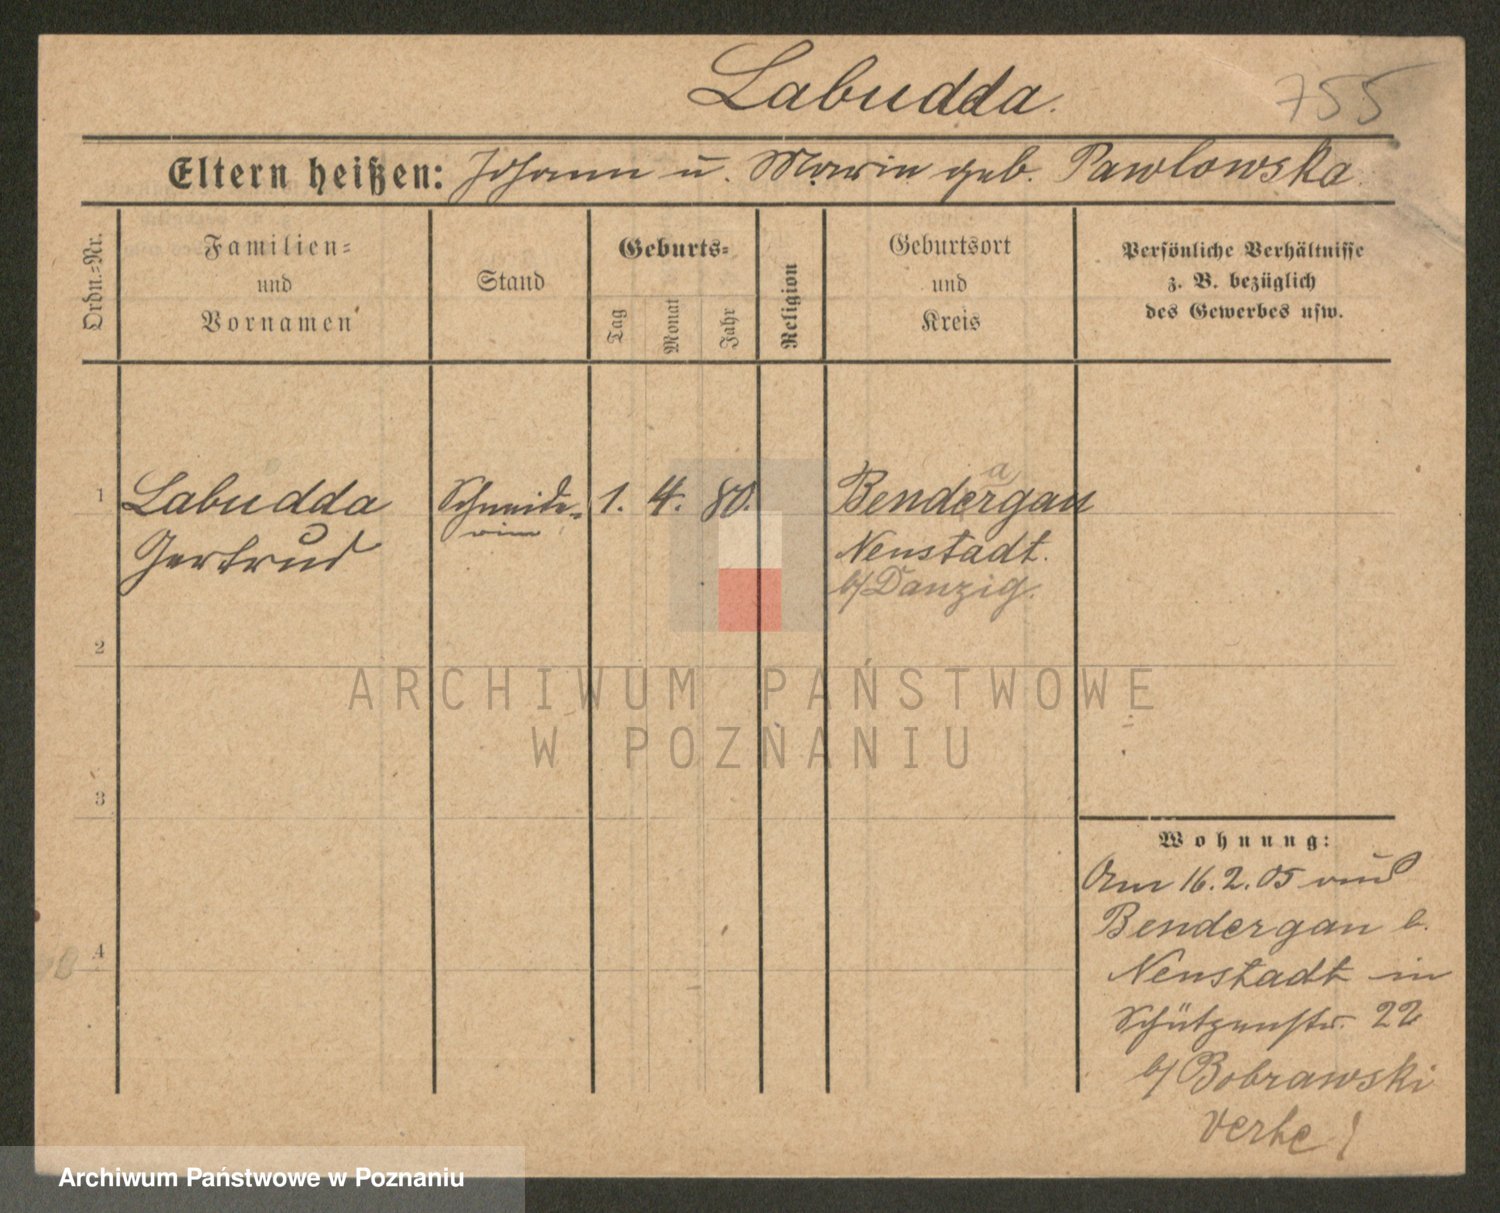 Labudda.
755
Eltern heißen: Johann u. Marie geb. Pawlowska.
Ordn.=Nr.
Familien=
und
Vornamen
Stand
Geburts=
Tag
Monat
Jahr
Religion
Geburtsort
und
Kreis
Persönliche Verhältnisse
z. B. bezüglich
des Gewerbes usw.
1
Labudda
Gertrud
Schneide-
rin
1. 4. 80.
a
Bendergau
Neustadt.
b/Danzig.
2
3
4
Wohnung:
Am 16.2.05 aus
Bendergau b.
Neustadt in
Schützenstr. 22
b/ Bobrawski
ARCHIWUM PAŃSTWOWE
W POZNANIU
Archiwum Państwowe w Poznaniu